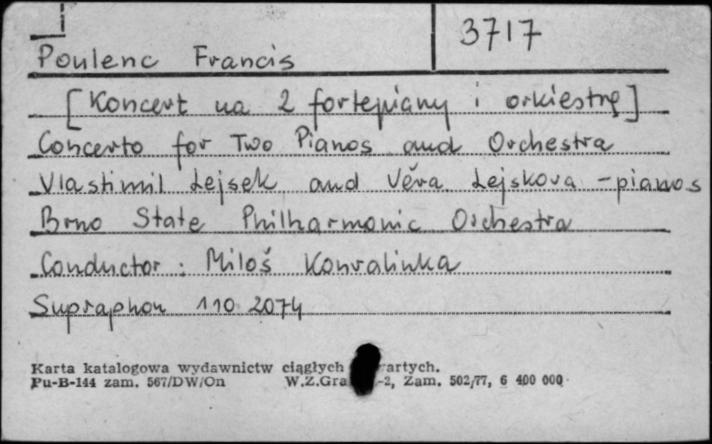 3717
Poulenc Francis
[Koncert na 2 fortepiany i orkiestrę]
Concerto for Two Pianos and Orchestra
Vlastimil Lejsek and Věra Lejskova - pianos
Brno State Philharmonic Orchestra
Conductor : Miloš Konvalinka
Supraphon 110 2074
Karta katalogowa wydawnictw ciągłych
Pu-B-144 zam. 567/DW/On -2, Zam. 502/77, 6 400 000